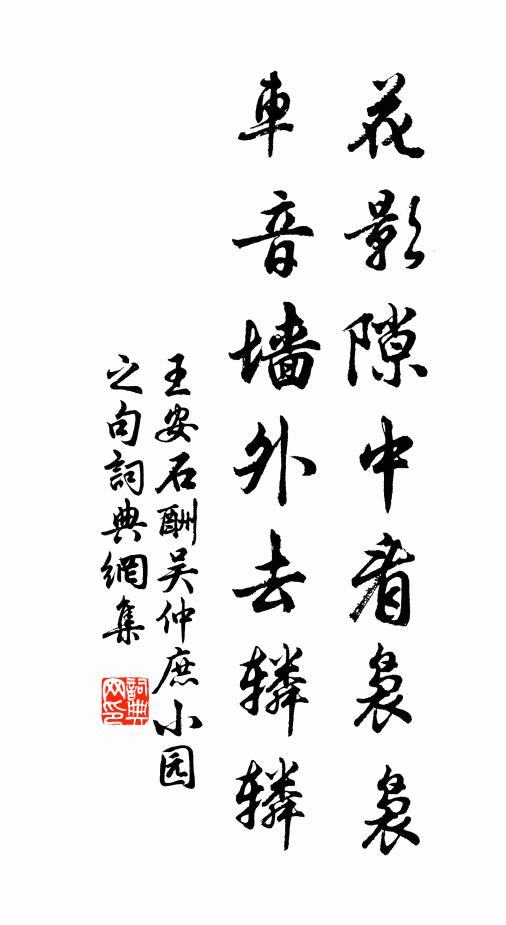 花影隙中看袅袅
車音墙外去辚辚
王安石酬吴仲庶小园
之句詞典網集
詞典网印